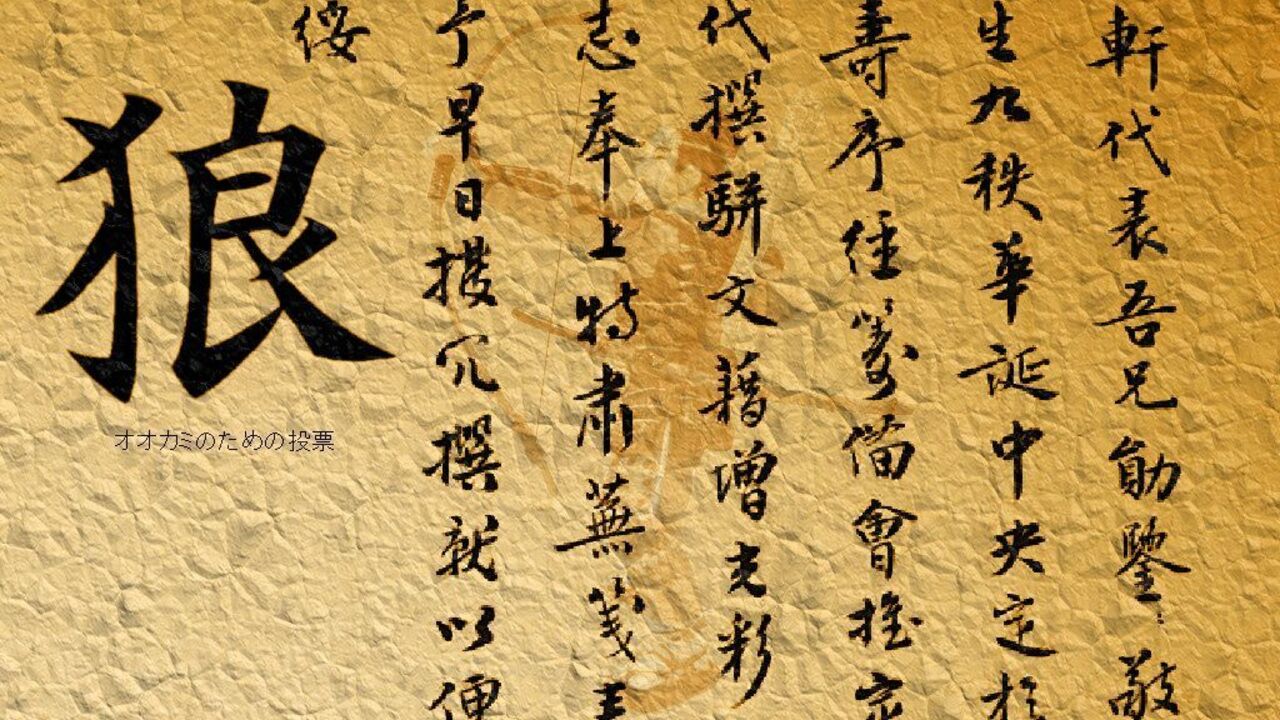 軒代表吾兄勛鑒：敬
生九秩華誕中央定於
壽序径籌備會推定
代撰駢文藉增光彩
志奉上特肅蕪箋專
予早日撥冗撰就以便
綏
狼
オオカミのための投票